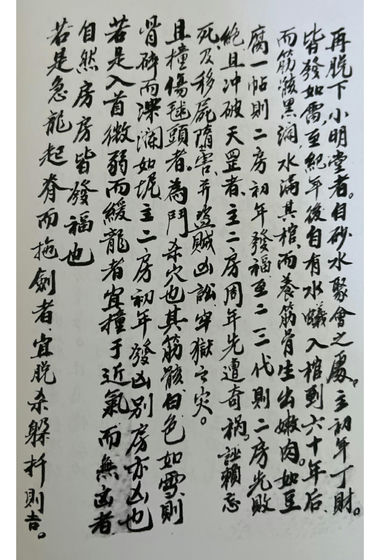 再脱下小明堂者。自砂水聚會之處。主初年丁財。
皆發如雷至紀年後自有水蟻入棺到六十年后
而筋骸黑潤水滿其棺而養筋骨生出嫩肉。如豆
腐一帖則二房初年發福至二三代則二房先敗
絕且冲破天罡者主二房周年先遭奇禍。誣賴忘
死及移屍隋害并盗贼凶訟牢獄之灾。
且撞傷毬頭者。為鬥杀穴也其筋骸白色如雪則
骨碎而深潤如泥主二房初年發凶别房亦凶也
若是入首微弱而緩龍者宜撞于近氣而無凶者
自然房房皆發福也
若是急龍起脊而拖劍者宜脱杀躲杆則吉。